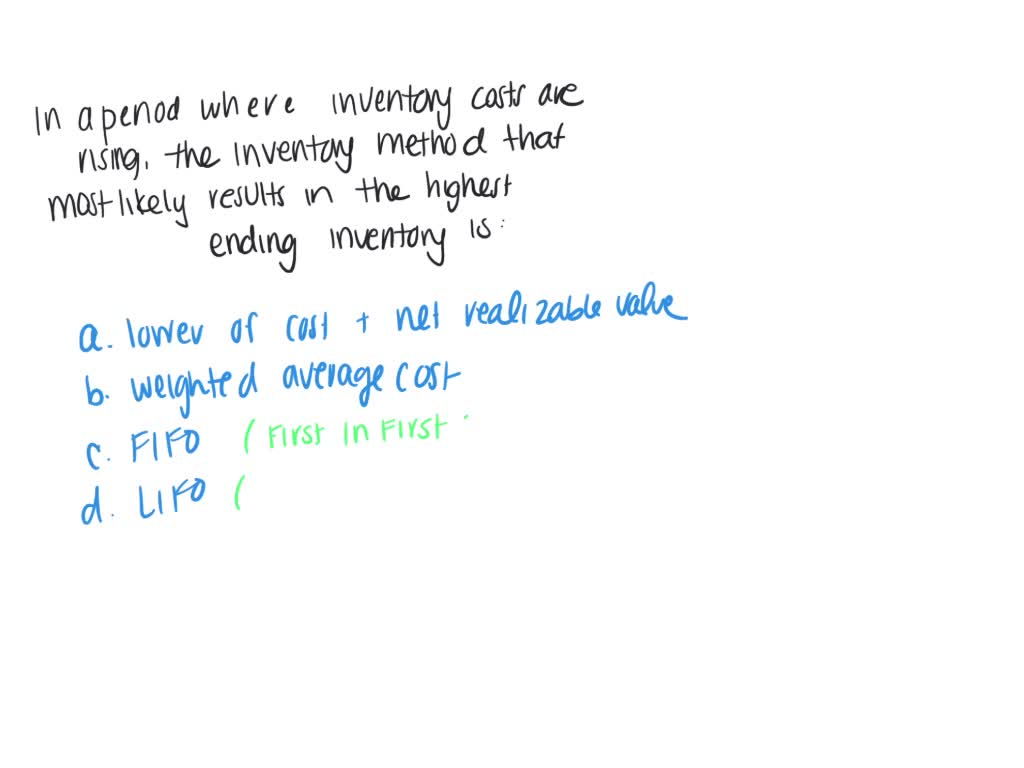 In a period where inventory costs are
rising, the inventory method that
most likely results in the highest
ending inventory is:
a. lower of cost + net realizable value
b. weighted average cost
c. FIFO (First in First
d. LIFO (